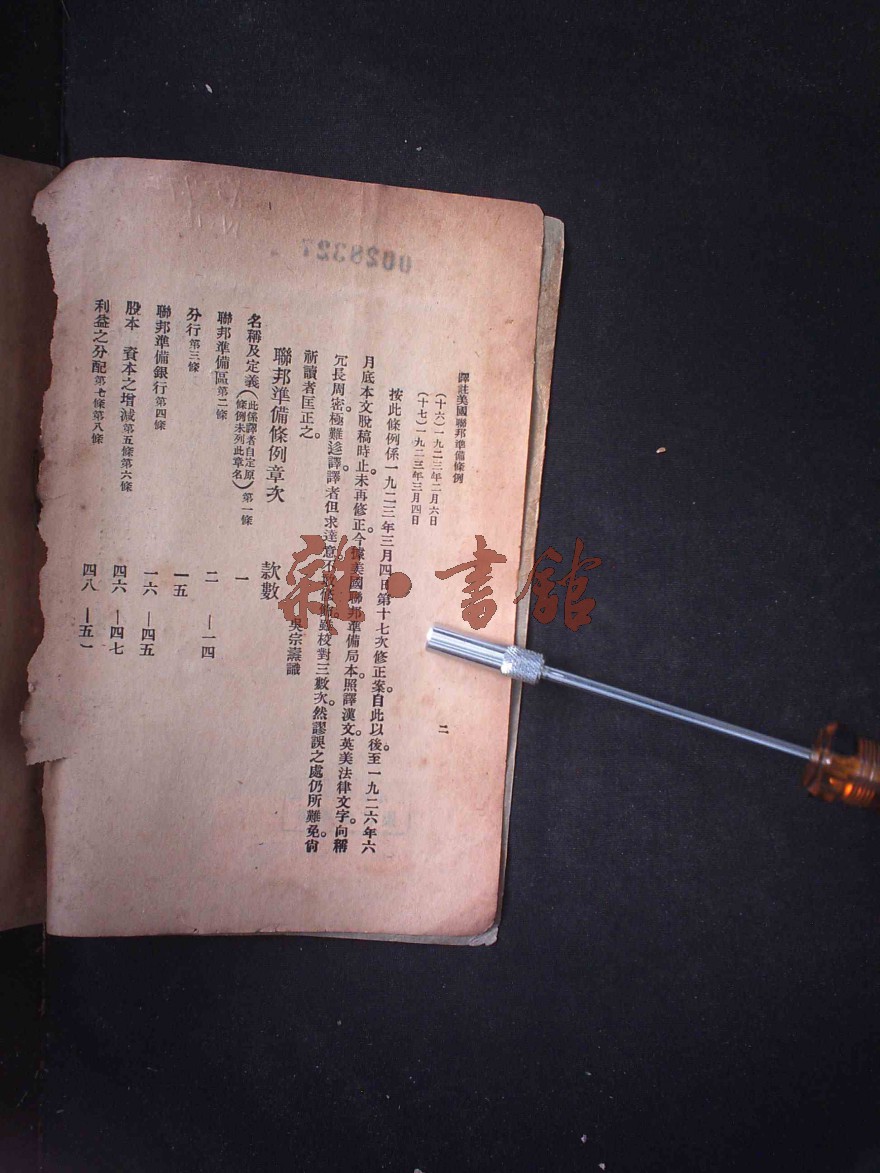 譯註美國聯邦準備條例
二
(十六)一九二三年二月六日
(十七)一九二三年三月四日
按此條例係一九二三年三月四日第十七次修正案。自此以後。至一九二六年六
月底本文脫稿時止未再修正。今據美國聯邦準備局本。照譯漢文。英美法律文字。向稱
冗長周密。極難迻譯。譯者但求達意不敢修飾。雖校對三數次。然謬誤之處仍所難免。尙
祈讀者匡正之。
吳宗燾識
聯邦準備條例章次 款數
名稱及定義(此係譯者自定原條例未列此章名)第一條 一
聯邦準備區第二條 二—一四
分行第三條 一五
聯邦準備銀行第四條 一六—四五
股本 資本之增減第五條第六條 四六—四七
利益之分配第七條第八條 四八—五一
0028327
雜·書館